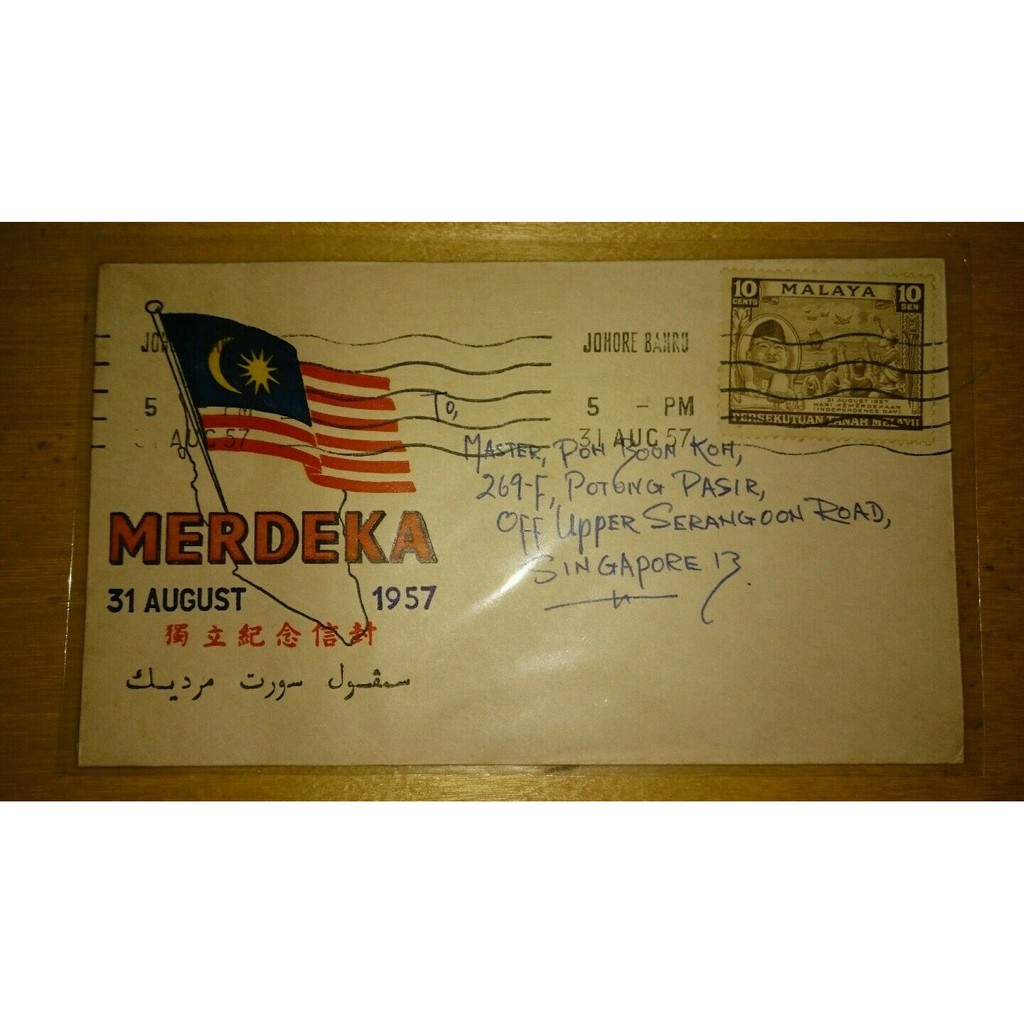 10 CENTS
MALAYA
10 SEN
31 AUGUST 1957
HARI KEMERDEKAAN
(INDEPENDENCE DAY)
PERSEKUTUAN TANAH MELAYU
JOHORE BAHRU
5 - PM
31 AUG 57
5 PM
AUG 57
To,
MASTER, POH BOON KOH,
269-F, POTONG PASIR,
OFF UPPER SERANGOON ROAD,
SINGAPORE 13.
MERDEKA
31 AUGUST 1957
獨立紀念信封
سمڤول سورت مرديك